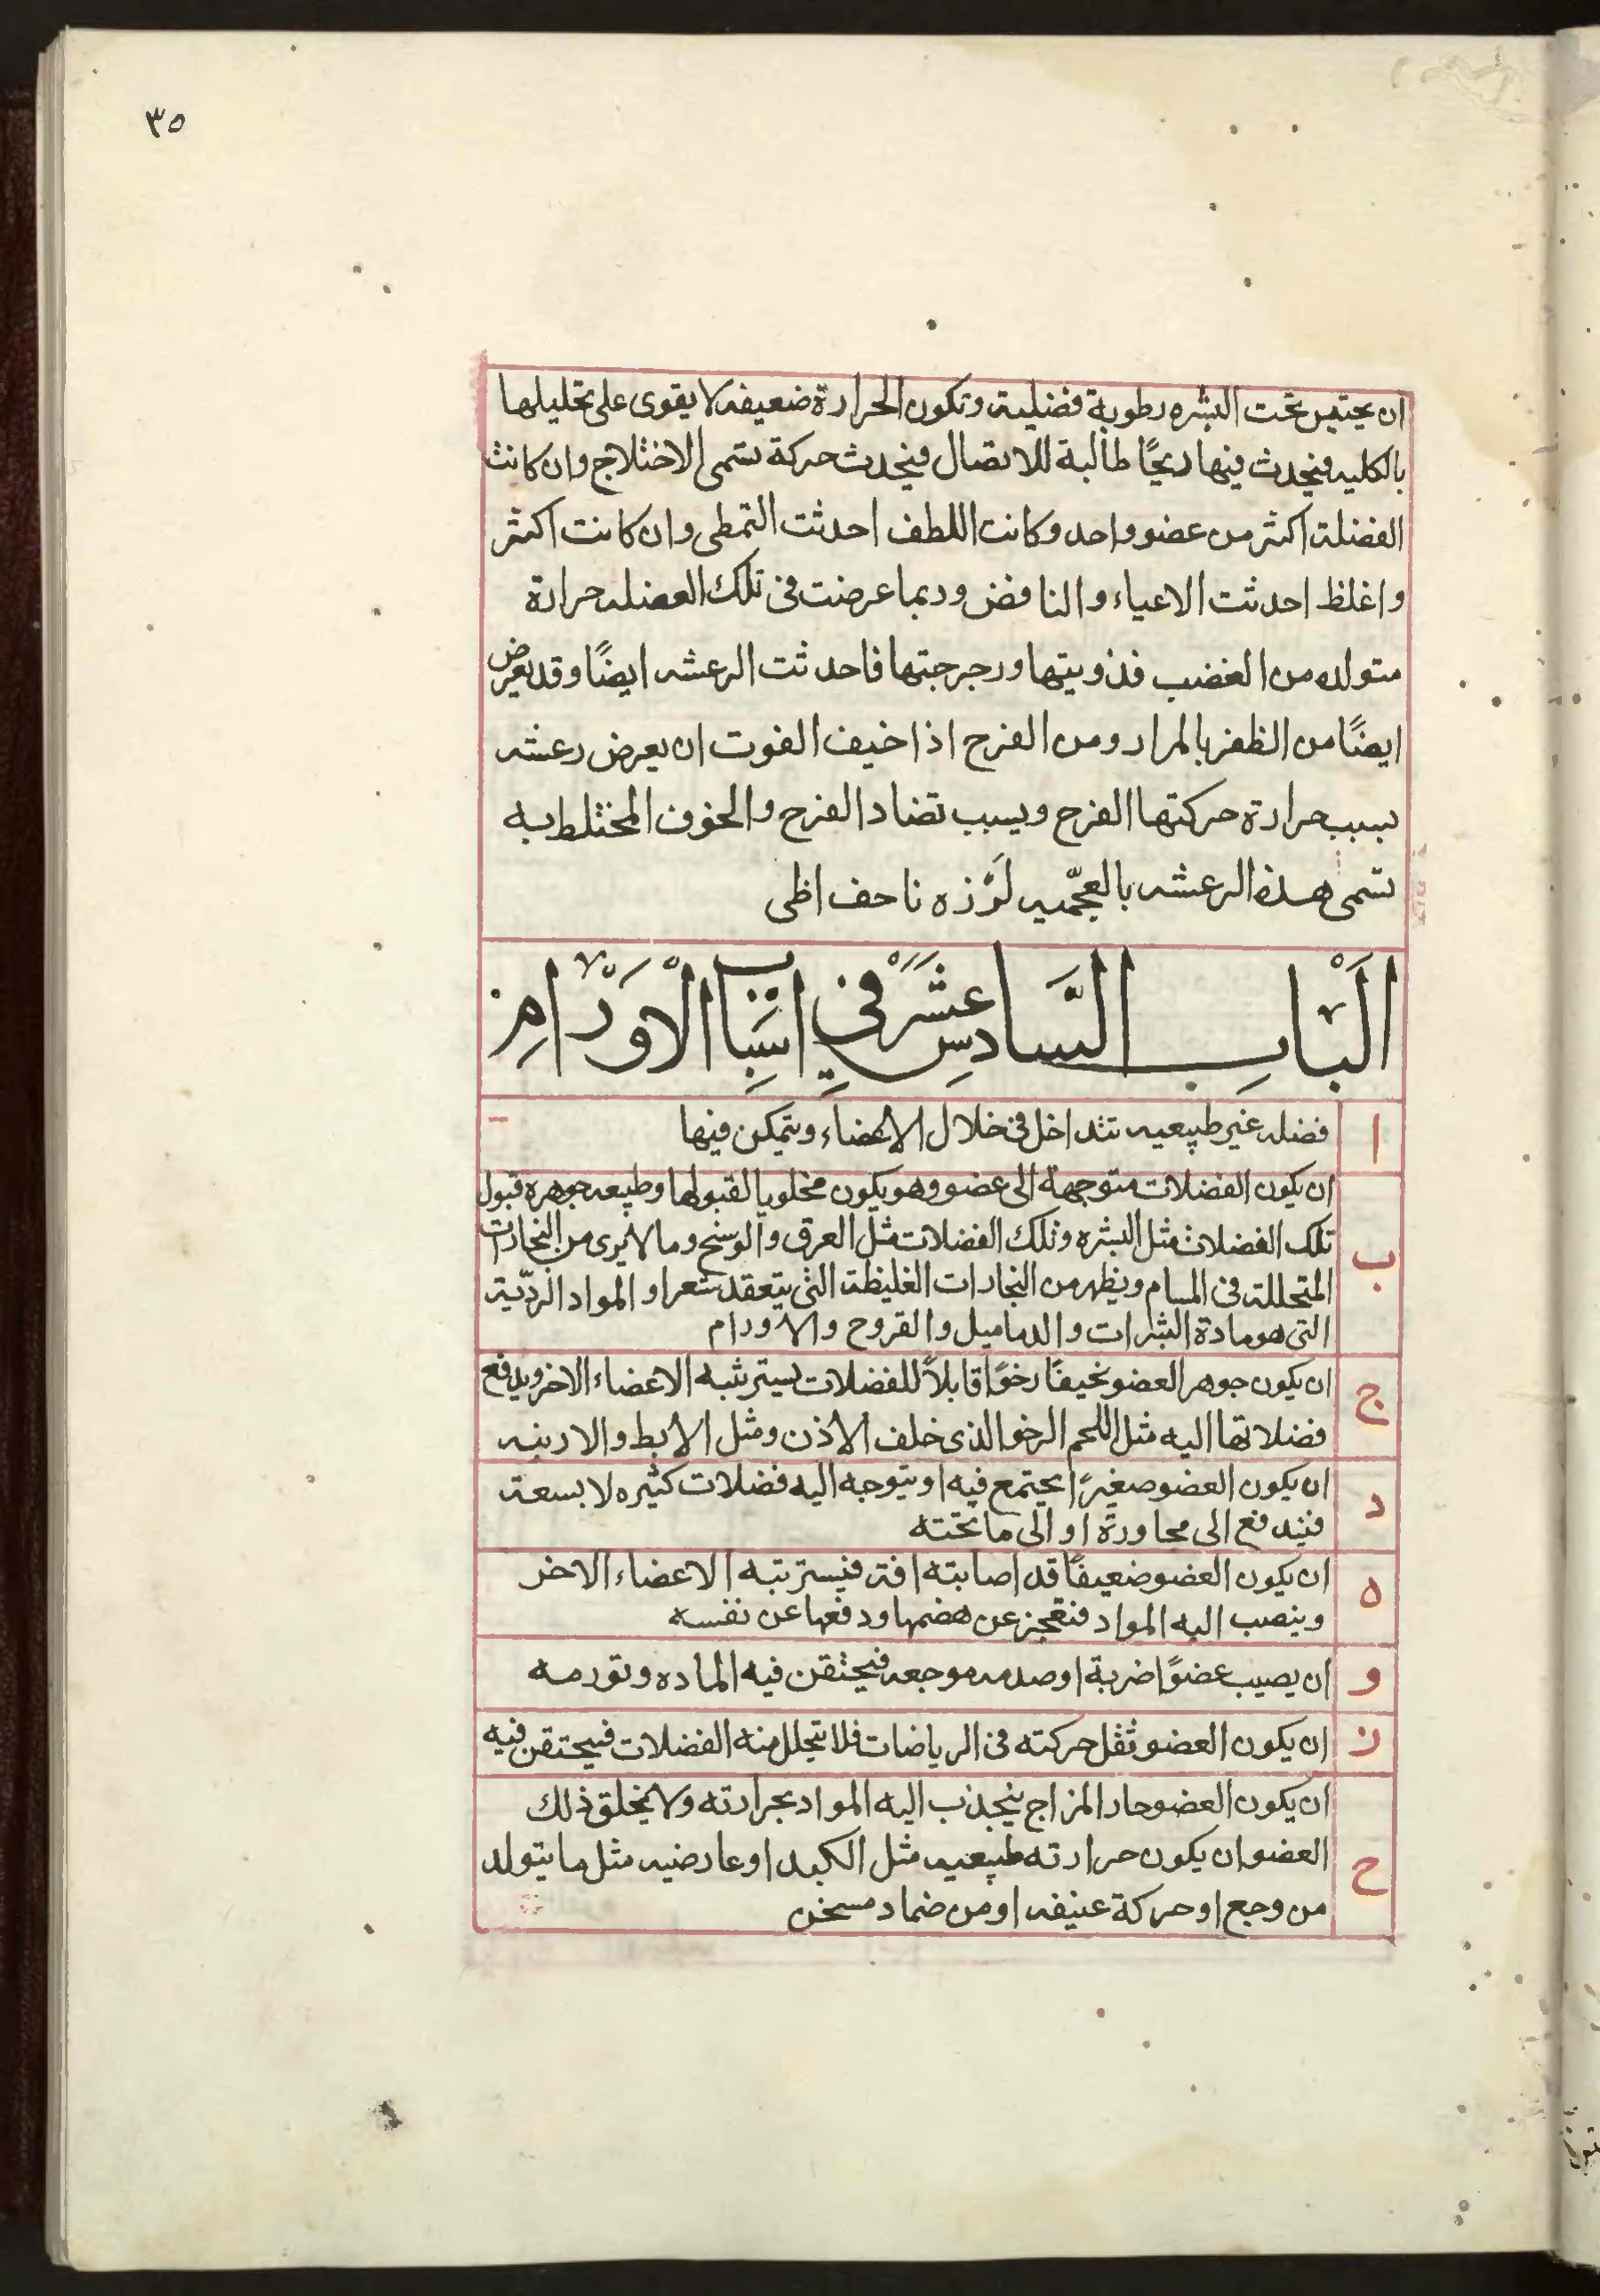 ٣٥
ان يحتبس تحت البشره رطوبة فضلية وتكون الحرارة ضعيفه لا يقوى على تحليلها
بالكليه فيحدث فيها ريحًا طالبة للاتصال فيحدث حركة تسمى الاختلاج وان كانت
الفضلة اكثر من عضو واحد وكانت اللطف احدثت التمطى وان كانت اكثر
واغلظ احدثت الاعياء والنافض وربما عرضت فى تلك العضله حرارة
متولده من الغضب فذوبتها ورجرجتها فاحدثت الرعشه ايضًا وقد يعرض
ايضًا من الظفر بالمراد ومن الفرح اذا خيف الفوت ان يعرض رعشه
بسبب حرارة حركتها الفرح وبسبب تضاد الفرح والخوف المختلط به
تسمى هذه الرعشه بالعجّميه لَرْزه ناحف اظى
الْبَابِ السَّادسِ عَشَرَ فى اسَبِاب الْاوَرْامِ
ا فضله غير طبيعيه تتداخل فى خلال الاعضاء ويتمكن فيها
ب ان يكون الفضلات متوجهة الى عضو وهو يكون مخلوبا لقبولها وطبيعه جوهره قبول
تلك الفضلات مثل البشره وتلك الفضلات مثل العرق والوسَخ وما لا يُرى من البخارات
المتحللة فى المسام ويظهر من البخارات الغليظة التى يتعقد شعرا و المواد الردّية
التى هو مادة البثرات والدماميل والقروح والاورام
ج ان يكون جوهر العضو نحيفًا رخوًا قابلاً للفضلات يسترثبه الاعضاء الاخر ويدفع
فضلاتها اليه مثل اللحم الرخو الذى خلف الاذن ومثل الابط والاربنيه
د ان يكون العضو صغيرًا يجتمع فيه او يتوجه اليه فضلات كثيره لا بسعة
فيندفع الى مجاورة او الى ما تحته
ه ان يكون العضو ضعيفًا قد اصابته افة فيسترتبه الاعضاء الاخر
وينصب اليه المواد فتعجز عن هضمها ودفعها عن نفسه
و ان يصيب عضوًا ضربة او صدمه موجعه فيحتقن فيه الماده وتورمه
ز ان يكون العضو ثقل حركته فى الرياضات فلا يتحلل منه الفضلات فيحتقن فيه
ح ان يكون العضو حار المزاج ينجذب اليه المواد بحرارته ولا يخلق ذلك
العضو ان يكون حرارته طبيعيه مثل الكبد او عارضيه مثل ما يتولد
من وجع او حركة عنيفه او من ضماد مسخن